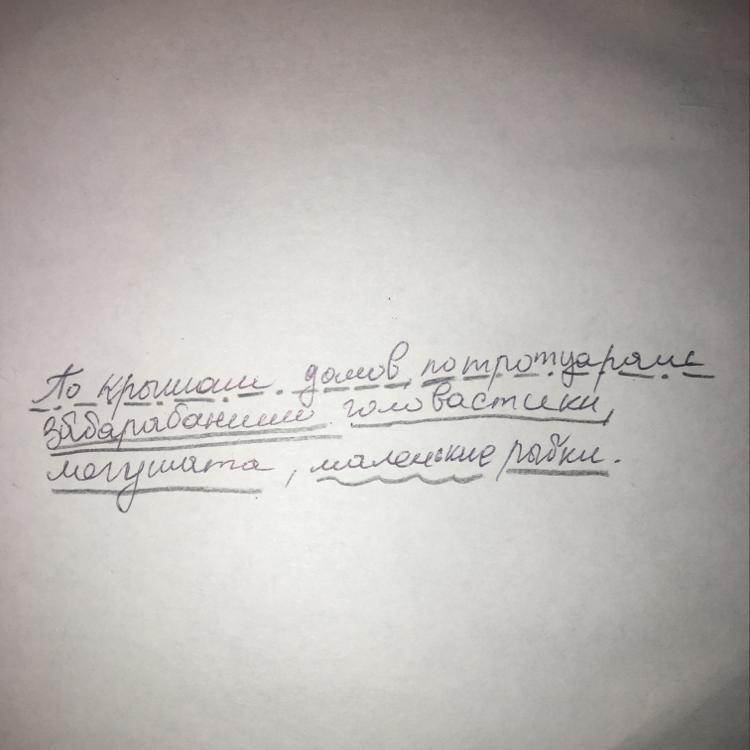 По крышам домов, по тротуарам
забарабанили головастики,
лягушата, маленькие рыбки.